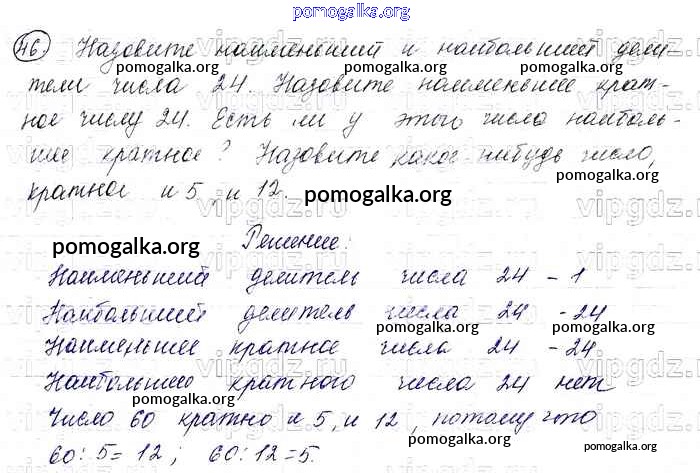 pomogalka.org
46. Назовите наименьший и наибольший дели-
pomogalka.org pomogalka.org
тели числа 24. Назовите наименьшее крат-
ное числу 24. Есть ли у этого числа наиболь-
pomogalka.org pomogalka.org
шее кратное? Назовите какое-нибудь число,
кратное и 5, и 12. pomogalka.org pomogalka.org
pomogalka.org
Решение:
Наименьший делитель числа 24 - 1
pomogalka.org
Наибольший делитель числа 24 - 24
pomogalka.org
Наименьшее кратное числа 24 - 24
pomogalka.org
Наибольшего кратного числа 24 нет
pomogalka.org
Число 60 кратно и 5, и 12, потому что
pomogalka.org
60:5=12; 60:12=5.
pomogalka.org